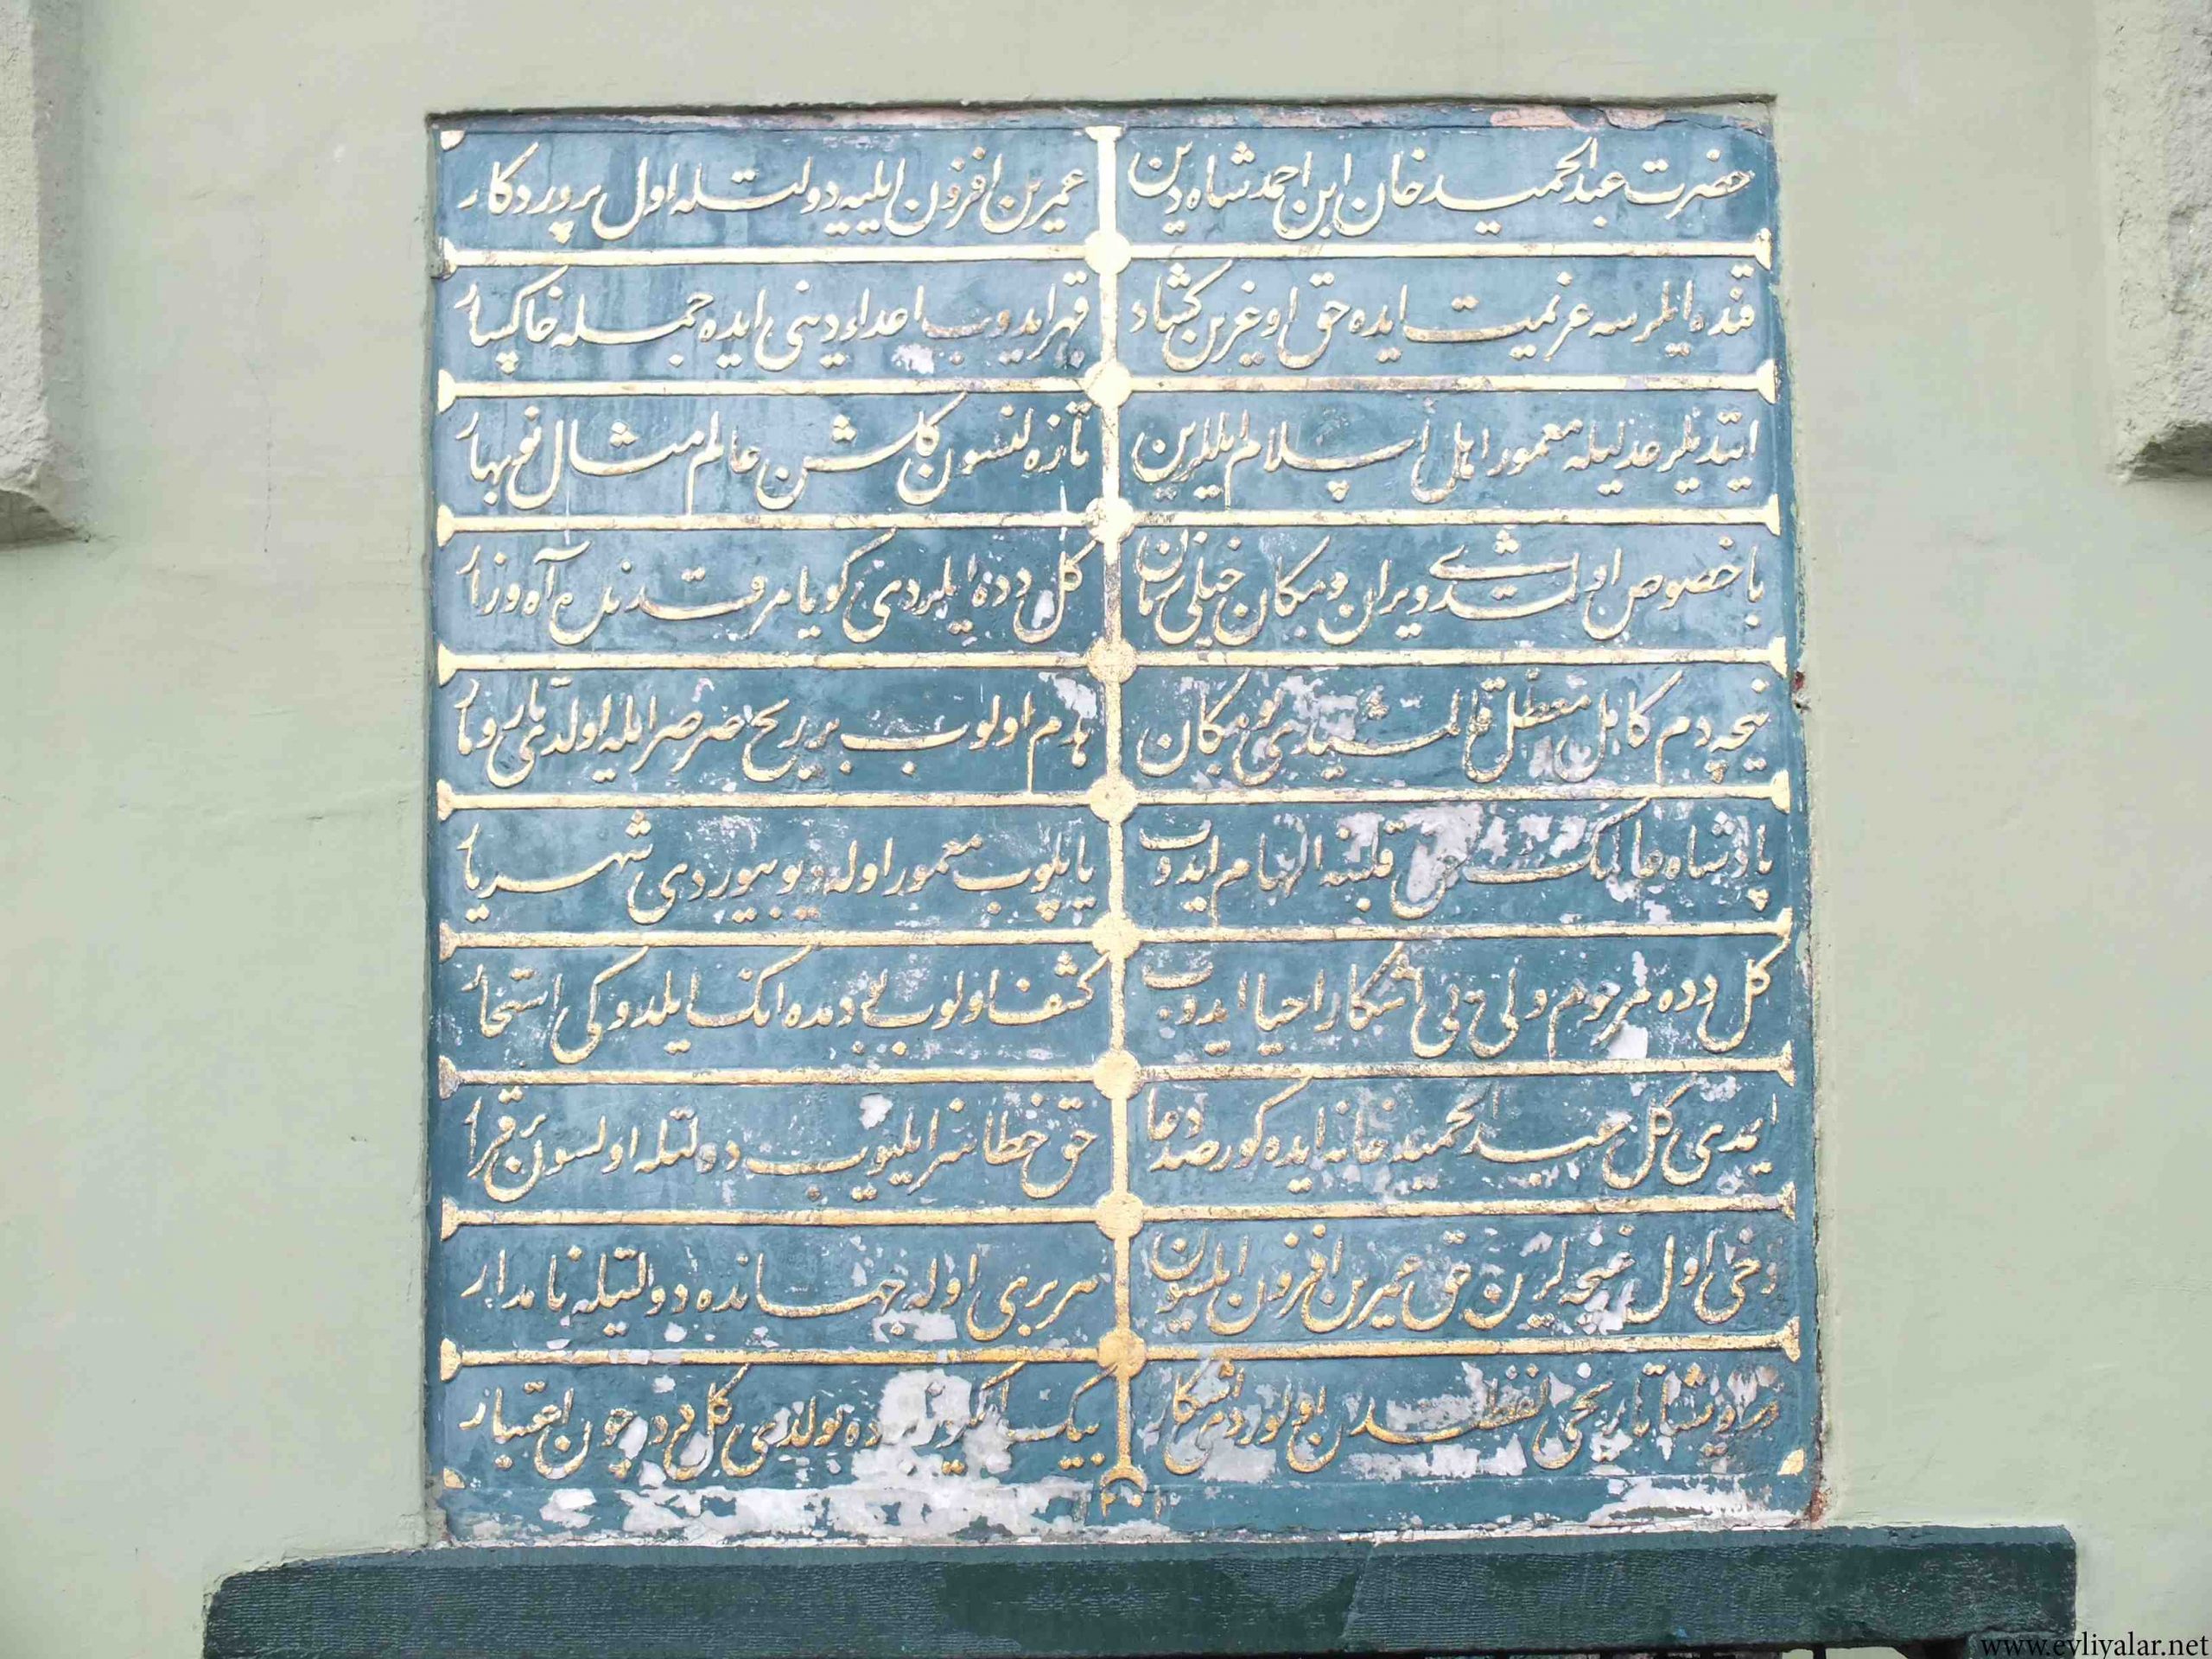 حضرت عبدالحمید خان ابن احمد شاه دین
عمرین افزون ایلیه دولتله اول پروردکار
قنده ایلرسه عزیمت ایده حق اوغرین کشاد
قهر ایدوب اعداء دینی ایده جمله خاکسار
ایتدیلر عدلیله معمور اهل اسلام ایللرین
تازه لنسون کلشن عالم مثال نوبهار
باخصوص اولمشدی ویران و مکان خیلی زمان
کل دده ایلردی کویا مرقدنده آه وزار
نیچه دم کامل معطل قالمشیدی بو مکان
هدم اولوب بر ریح صرصر ایله اولدی تار و مار
پادشاه عالمک حق قلبنه الهام ایدوب
یاپلوب معمور اوله دیو بیوردی شهریار
کل دده مرحوم ولی بی آشکار احیا ایدوب
کشف اولوب بو دمده انک ایلدوکی استخار
ایمدی کل عبدالحمید خانه ایده کور صد دعا
حق خطاسز ایلیوب دولتله اولسون برقرار
دخی اول غنچه لرین حق عمرین افزون ایلسون
هر بری اوله جهانده دولتیله نامدار
تاریخی لفظدن اولوردی آشکار
بیک ایکیوز ده بولدی کل دده چون اعتبار